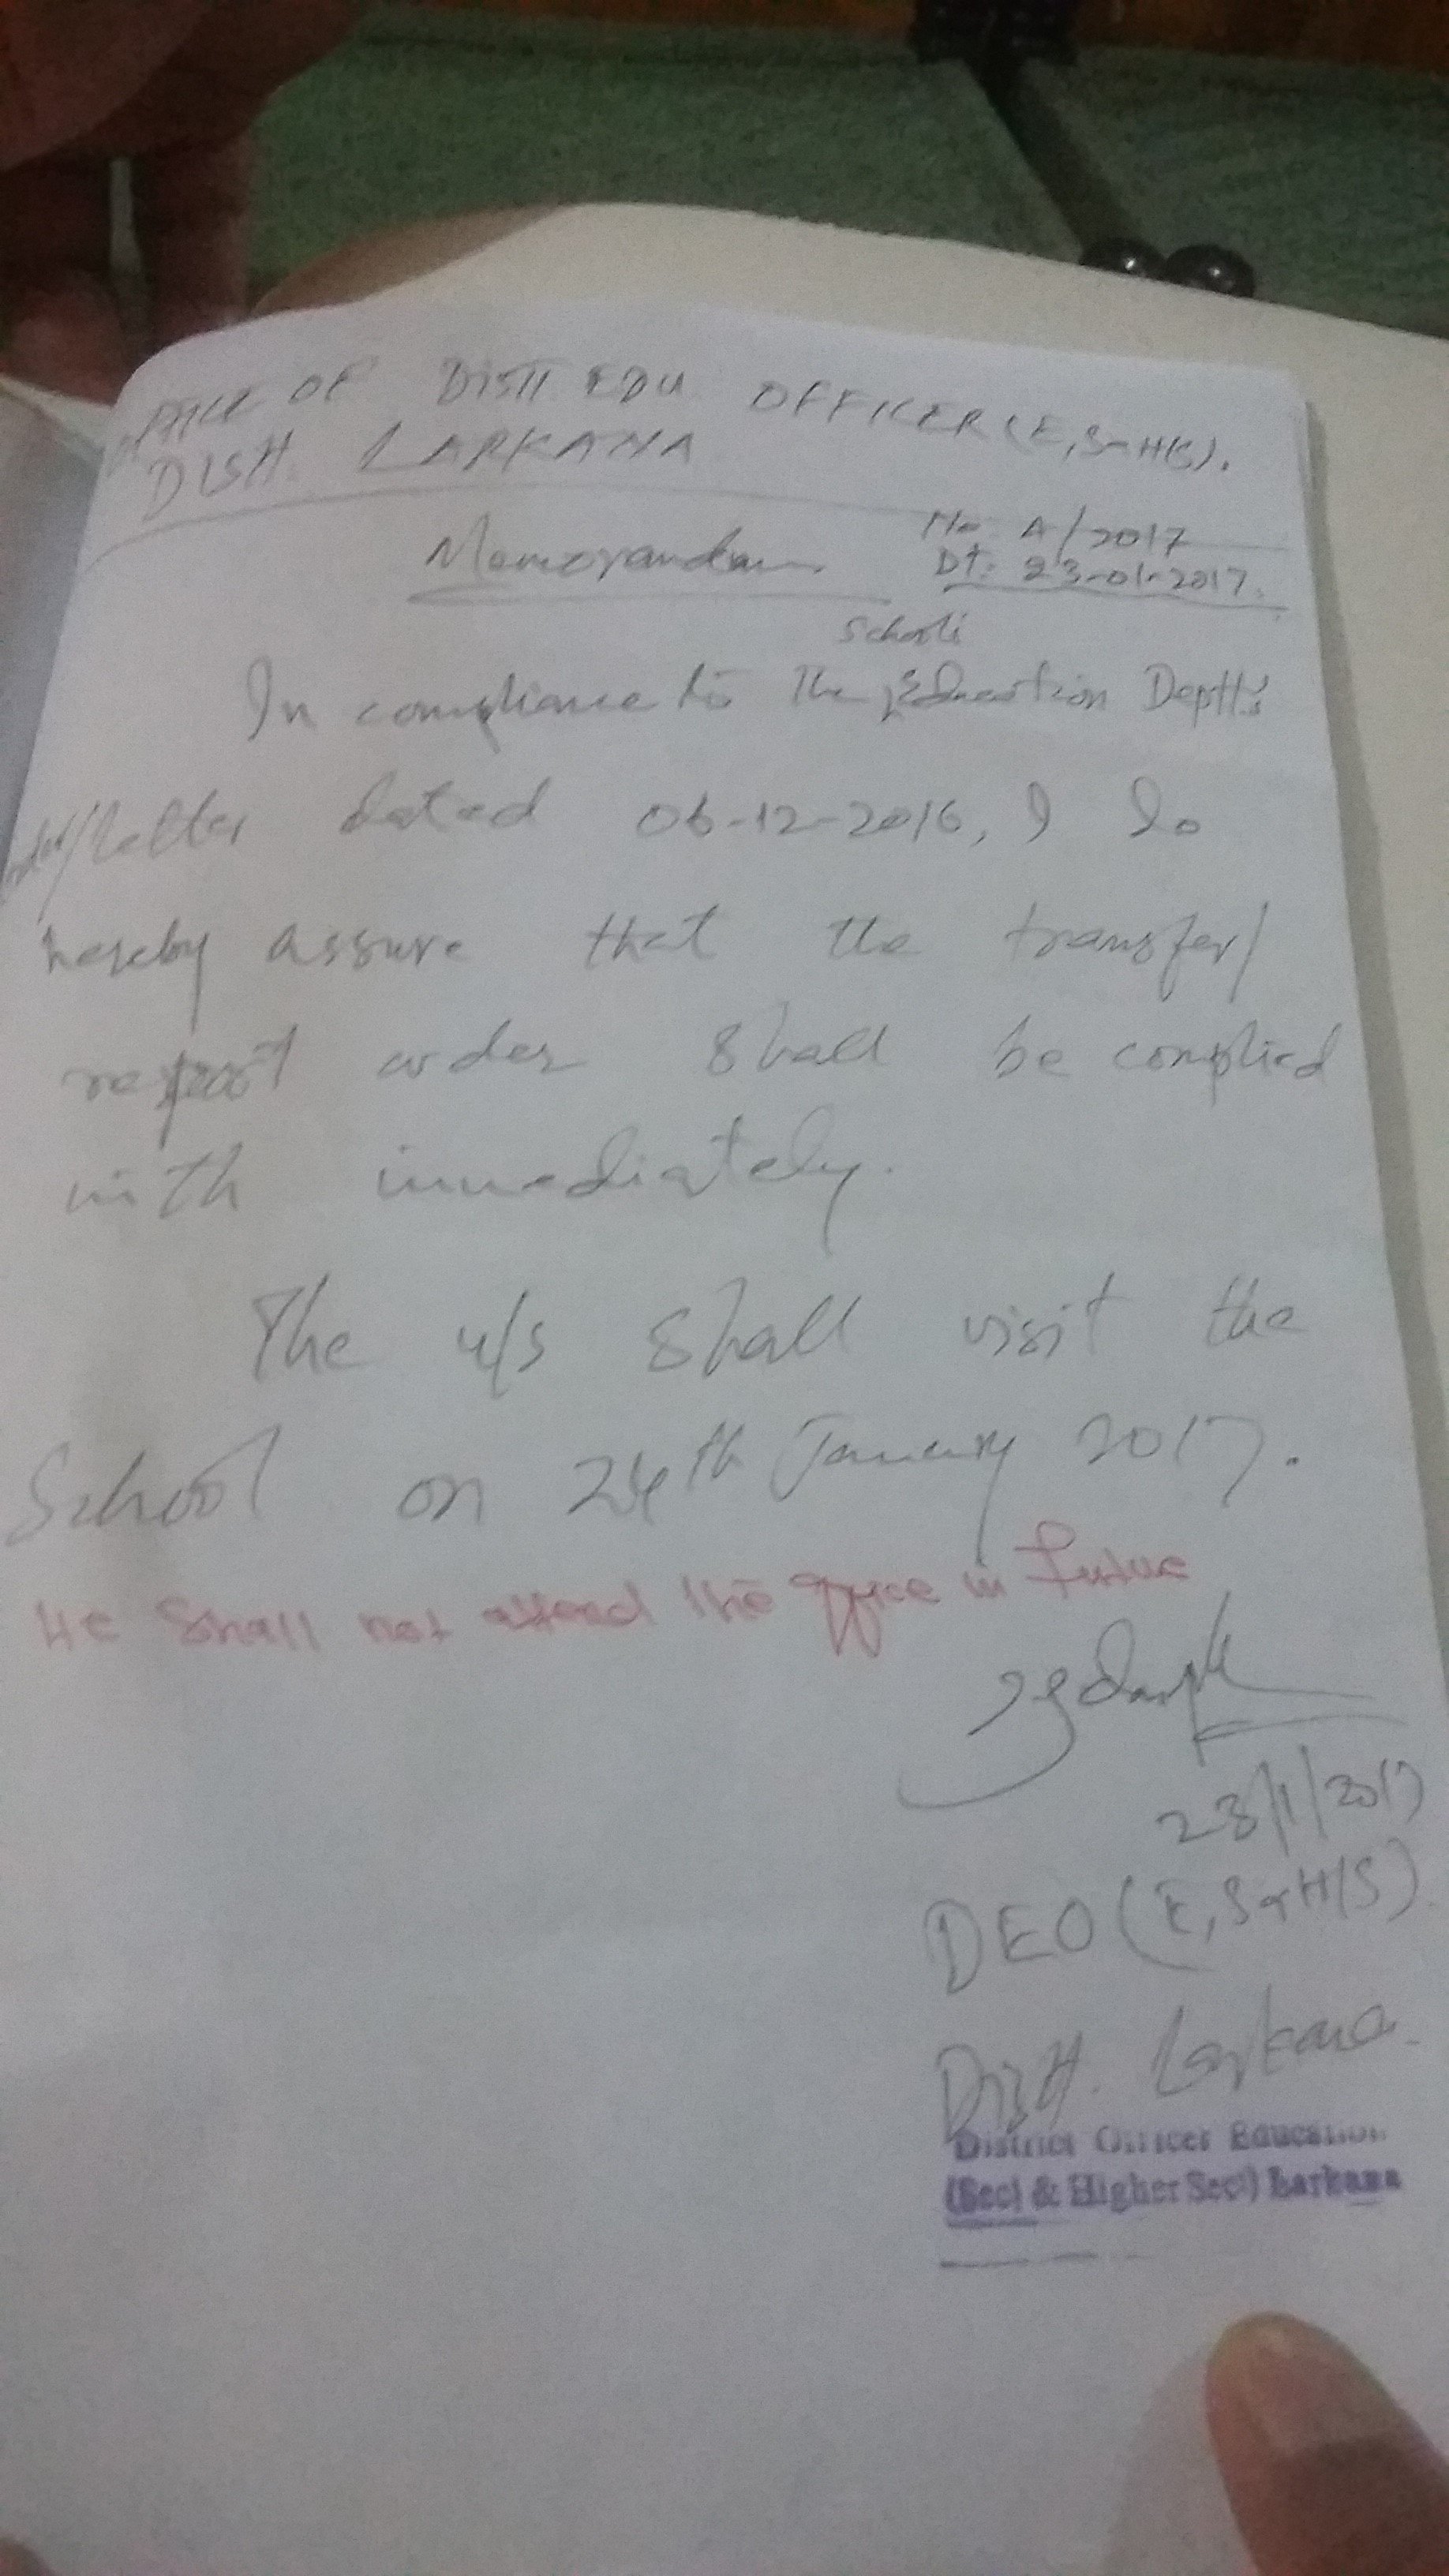 OFFICE OF DISTT EDU OFFICER (E, S&H/S).
DISTT. LARKANA
Memorandum
No. A/2017
Dt: 23-01-2017.
Schools
In compliance to the Education Deptt's
order/letter dated 06-12-2016, I do
hereby assure that the transfer/
report order shall be complied
with immediately.
The u/s shall visit the
School on 24th January 2017.
He shall not attend the office in future
23/1/2017
DEO (E, S&H/S)
Distt. Larkana.
District Officer Education
(Sec) & Higher Sec) Larkana